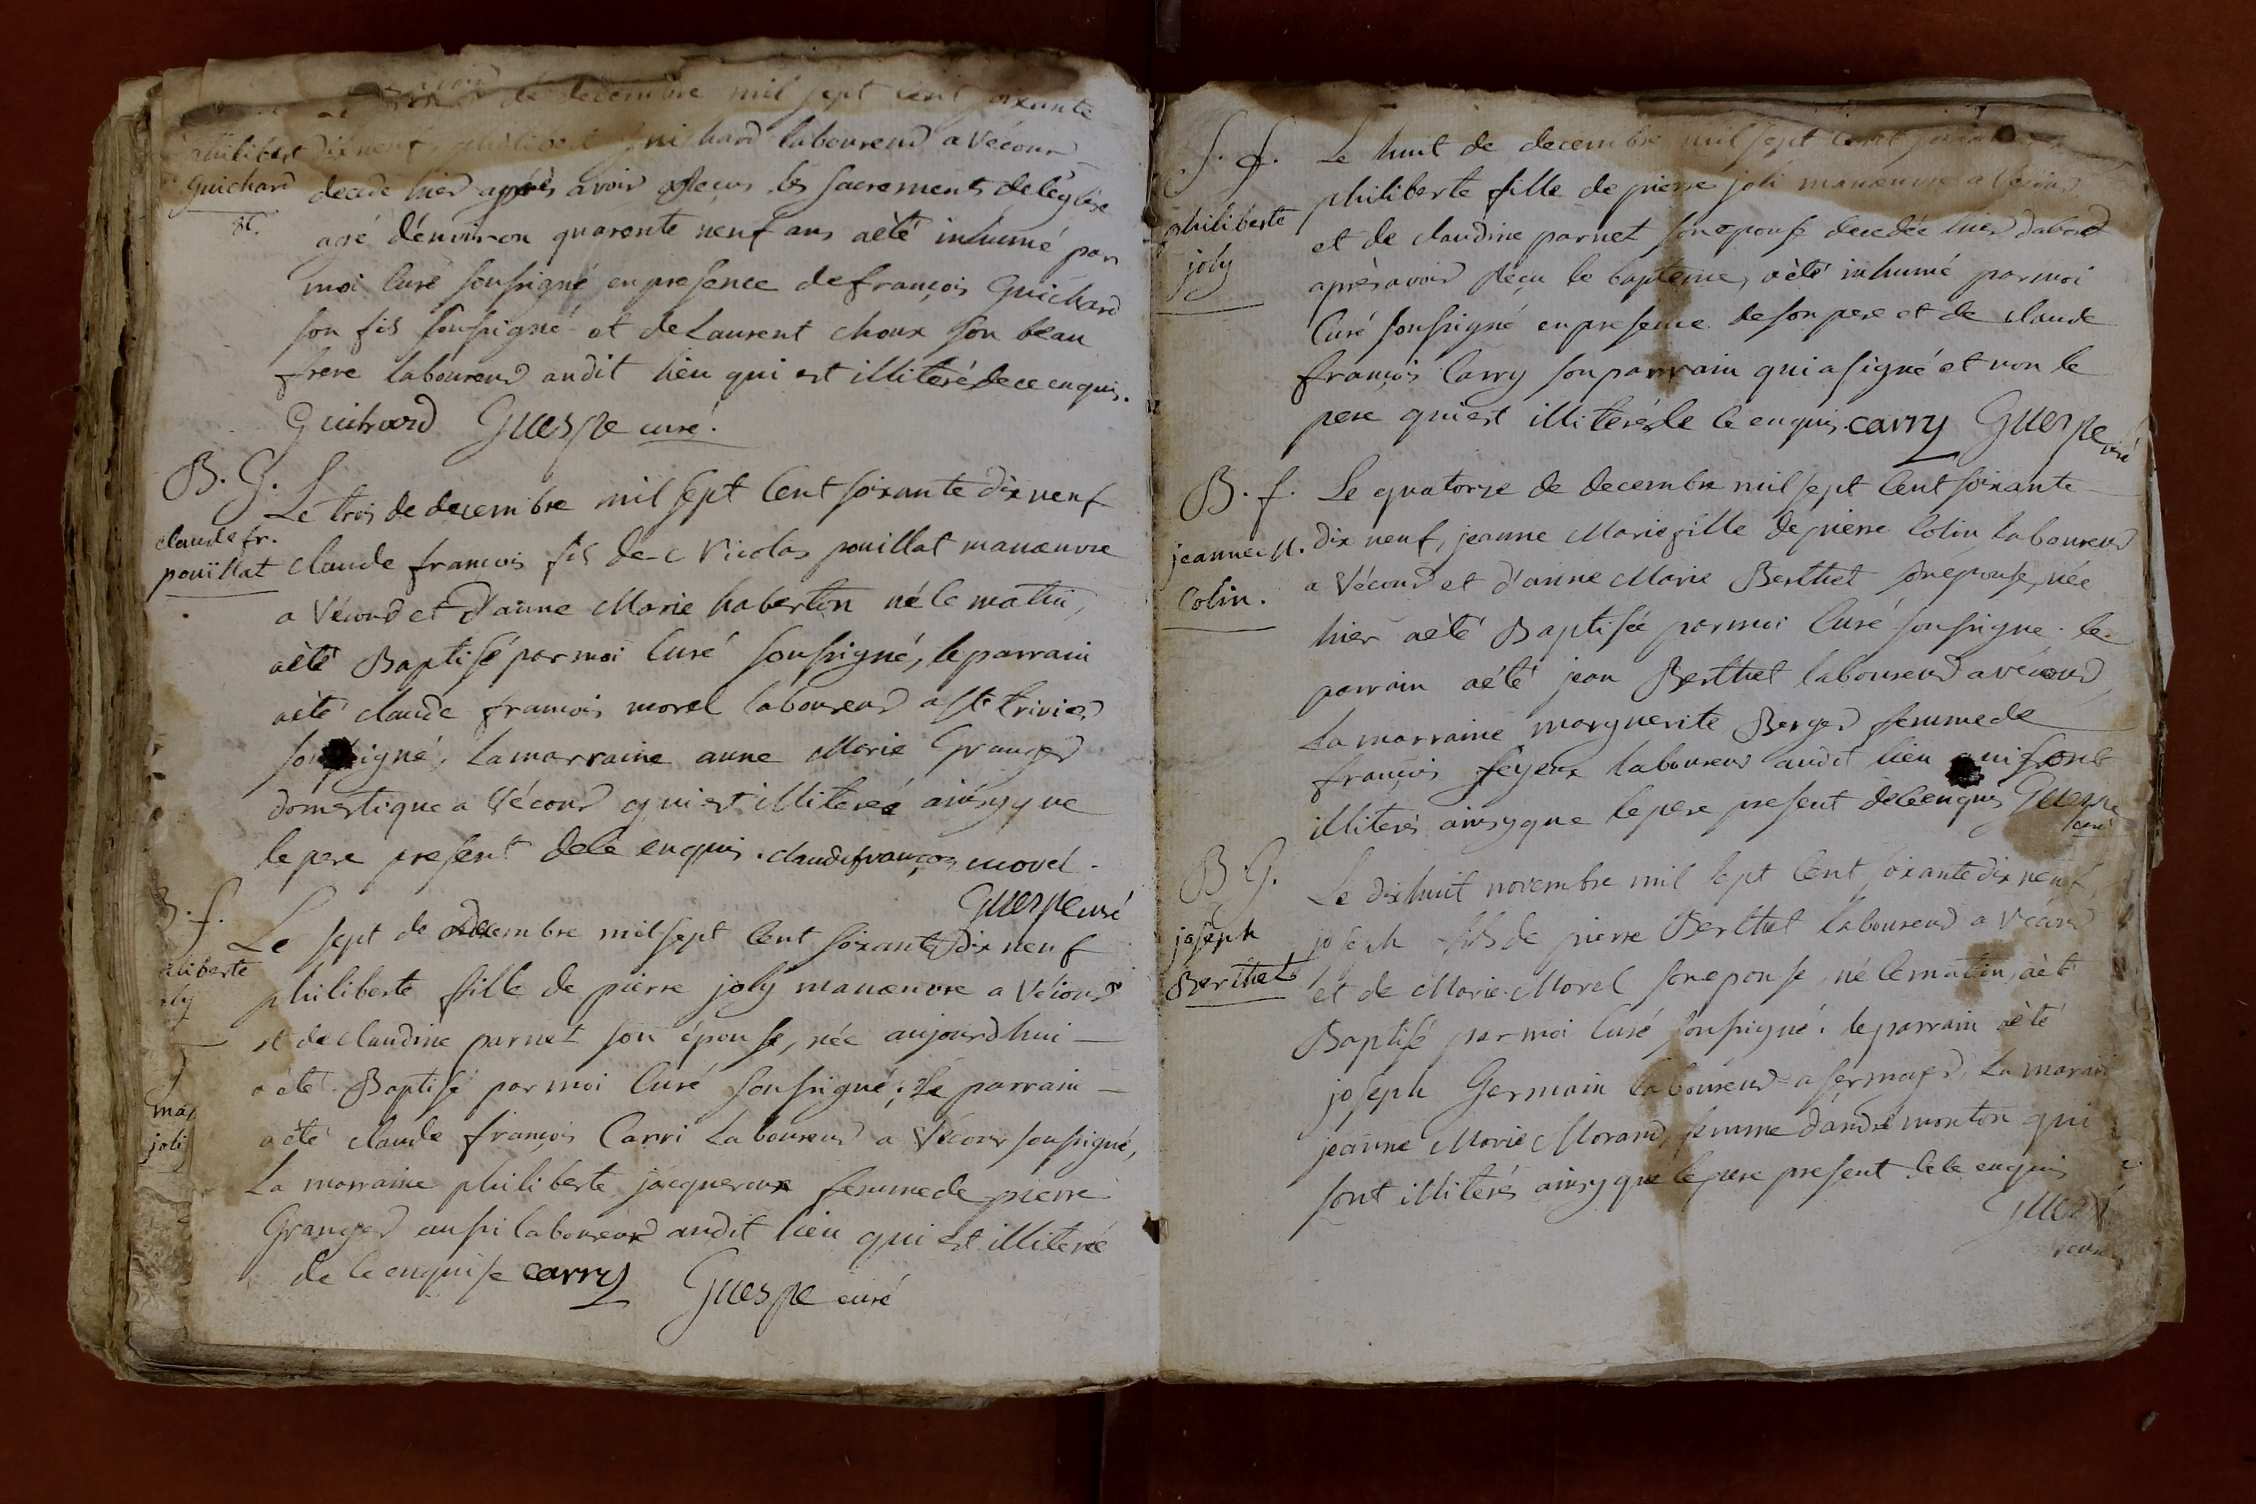 de decembre mil sept cent soixante
philibert
Guichard
dix neuf, philibert Guichard laboureur a Vécour
decede hier après avoir reçus les sacrements de l'eglise
agé d'environ quarente neuf ans aèté inhumé par
moi curé soussigné en presence de françois Guichard
son fils soussigné et de Laurent choux son beau
frere laboureur audit lieu qui est illiteré de ce enquis.
Guichard Guespe curé.
B. G.
claude fr.
pouillat
Le trois de decembre mil sept cent soixante dix neuf
claude francois fils de Nicolas pouillat manœuvre
a Vécour et d'anne Marie haberton né le matin,
aèté Baptisé par moi curé soussigné, le parrain
aèté claude francois morel laboureur a st trivier
soussigné, la marraine anne Marie Granger
domestique a Vécour qui est illiterée ainsy que
le pere present de ce enquis. claude françois morel.
Guespe curé
B. f.
philiberte
joly
Le sept de decembre mil sept cent soixante dix neuf
philiberte fille de pierre joly manœuvre a Vécour
et de claudine parnet son épouse, née aujourdhui
aèté Baptisé par moi curé soussigné; Le parrain
mar
joli
aèté claude françois Carri Laboureur a Vécour soussigné,
La marraine philiberte jacqueroux femme de pierre
Granger aussi laboureur audit lieu qui est illiterée
de ce enquise carry Guespe curé
S. f.
philiberte
joly
Le huit de decembre mil sept cent soixante
philiberte fille de pierre joli manœuvre a Vécour
et de claudine parnet son epouse decedée hier d'abord
après avoir reçu le baptême, aèté inhumé par moi
curé soussigné en presence de son pere et de claude
françois Carry son parrain qui a signé et non le
pere qui est illiteré de ce enquis. carry Guespe curé
B. f.
jeanne M.
Colin.
Le quatorze de decembre mil sept cent soixante
dix neuf, jeanne Marie fille de pierre Colin laboureur
a Vécour et d'anne Marie Berthet son epouse, née
hier aèté Baptisée par moi curé soussigné. le
parrain aété jean Berthet laboureur a vécour,
La marraine marguerite Berger femme de
françois feyeux laboureur audit lieu qui sont
illiterés ainsy que le pere present de ce enquis Guespe
curé
B. G.
joseph
Berthet
Le dixhuit novembre mil sept cent soixante dix neuf
joseph fils de pierre Berthet laboureur a Vécour
et de Marie Morel son epouse, né le matin, aèté
Baptisé par moi curé soussigné. le parrain aèté
joseph Germain laboureur a sermoyer, La maraine
jeanne Marie Morand, femme d'andré monton qui
sont illiterés ainsy que le pere present de ce enquis
Guespe
curé